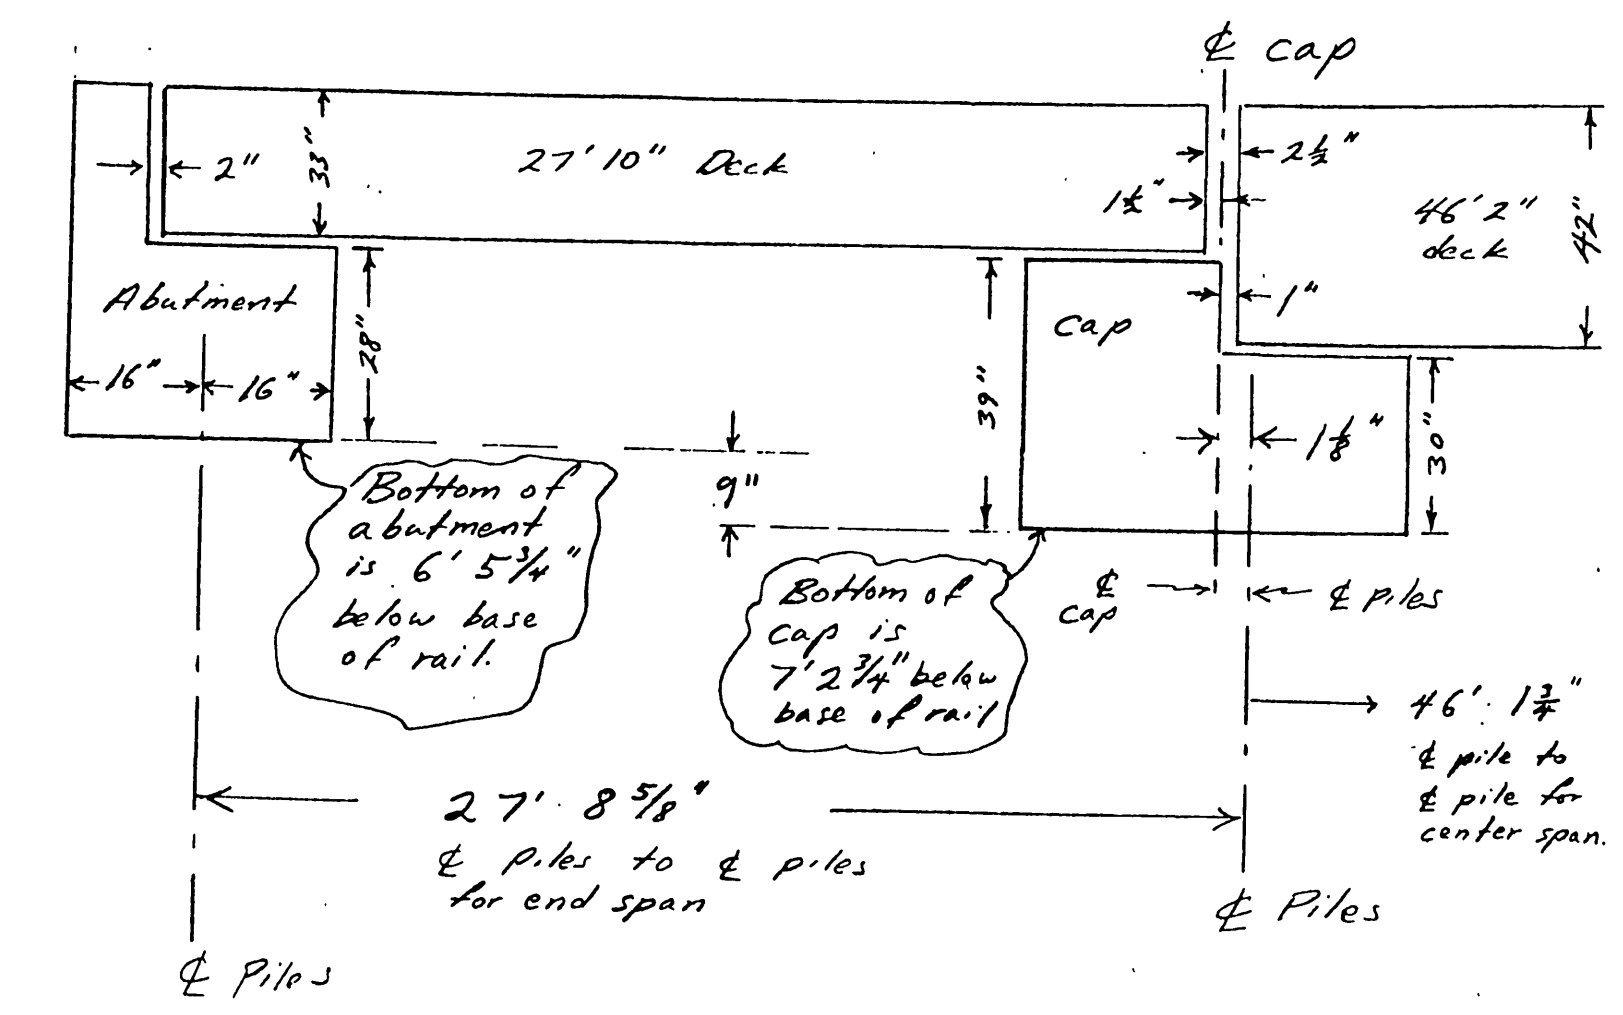 ℄ cap
2"
33"
27' 10" Deck
2 1/2"
1 1/2"
46' 2"
deck
42"
Abutment
16"
16"
28"
39"
Cap
1"
1 1/8"
30"
9"
Bottom of
abutment
is 6' 5 3/4"
below base
of rail.
Bottom of
cap is
7' 2 3/4" below
base of rail
℄
cap
℄ piles
46' 1 3/4"
℄ pile to
℄ pile for
center span.
27' 8 5/8"
℄ piles to ℄ piles
for end span
℄ Piles
℄ Piles